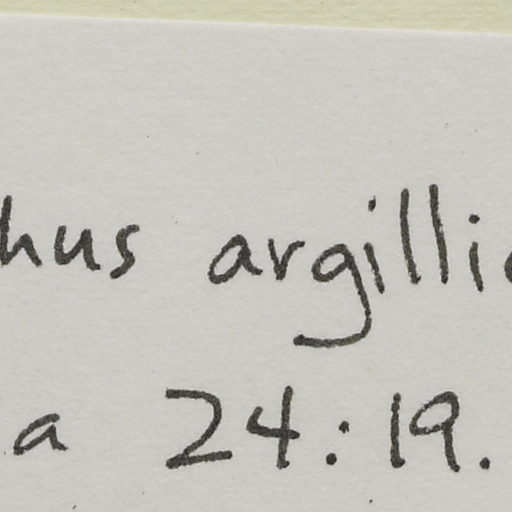 hus argilli
a 24:19.